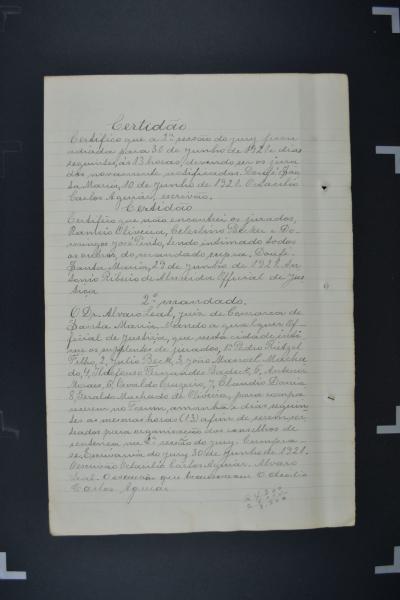 Certidão
Certifico que a 2ª sessão do jury ficou
adiada para 30 de Junho de 1921 e dias
seguintes, ás 13 horas, devendo ser os jura
dos novamente notificados. Doufé. San
ta Maria, 10 de Junho de 1921. Octacilio
Carlos Aguiar, escrivão.
Certidão
Certifico que não encontrei os jurados,
Ramiro Oliveira, Celestino Becker e Do
mingos José Pinto, sendo intimado todos
os outros do mandado supra. Doufé.
Santa Maria, 29 de Junho de 1921. An
tonio Ribeiro de Almeida Official de Jus
tiça
2º mandado.
O Dr. Alvaro Leal, juiz de Comarca de
Santa Maria. Mando a qualquer Of
ficial de Justiça, que nesta cidade inti
me os supplentes de jurados, 1º Pedro
Filho, 2, Julio Beck, 3, João Manoel Macha
do, 4, Ildefonso Fernandes 5, Antenor
Moraes, 6, Osvaldo Cruzeiro, 7, Claudio
8, Geraldo Machado de Oliveira, para compa
recerem no Forum, amanhã e dias seguin
tes as mesmas horas (13) afim de serem sor
teados para organização dos conselhos de
sentença na 2ª sessão do jury. Cumpra-
se. Escrivania do jury 30 de Junho de 1921.
Escrivão Octacilio Carlos Aguiar. Alvaro
Leal. O escrivão que Octacilio
Carlos Aguiar